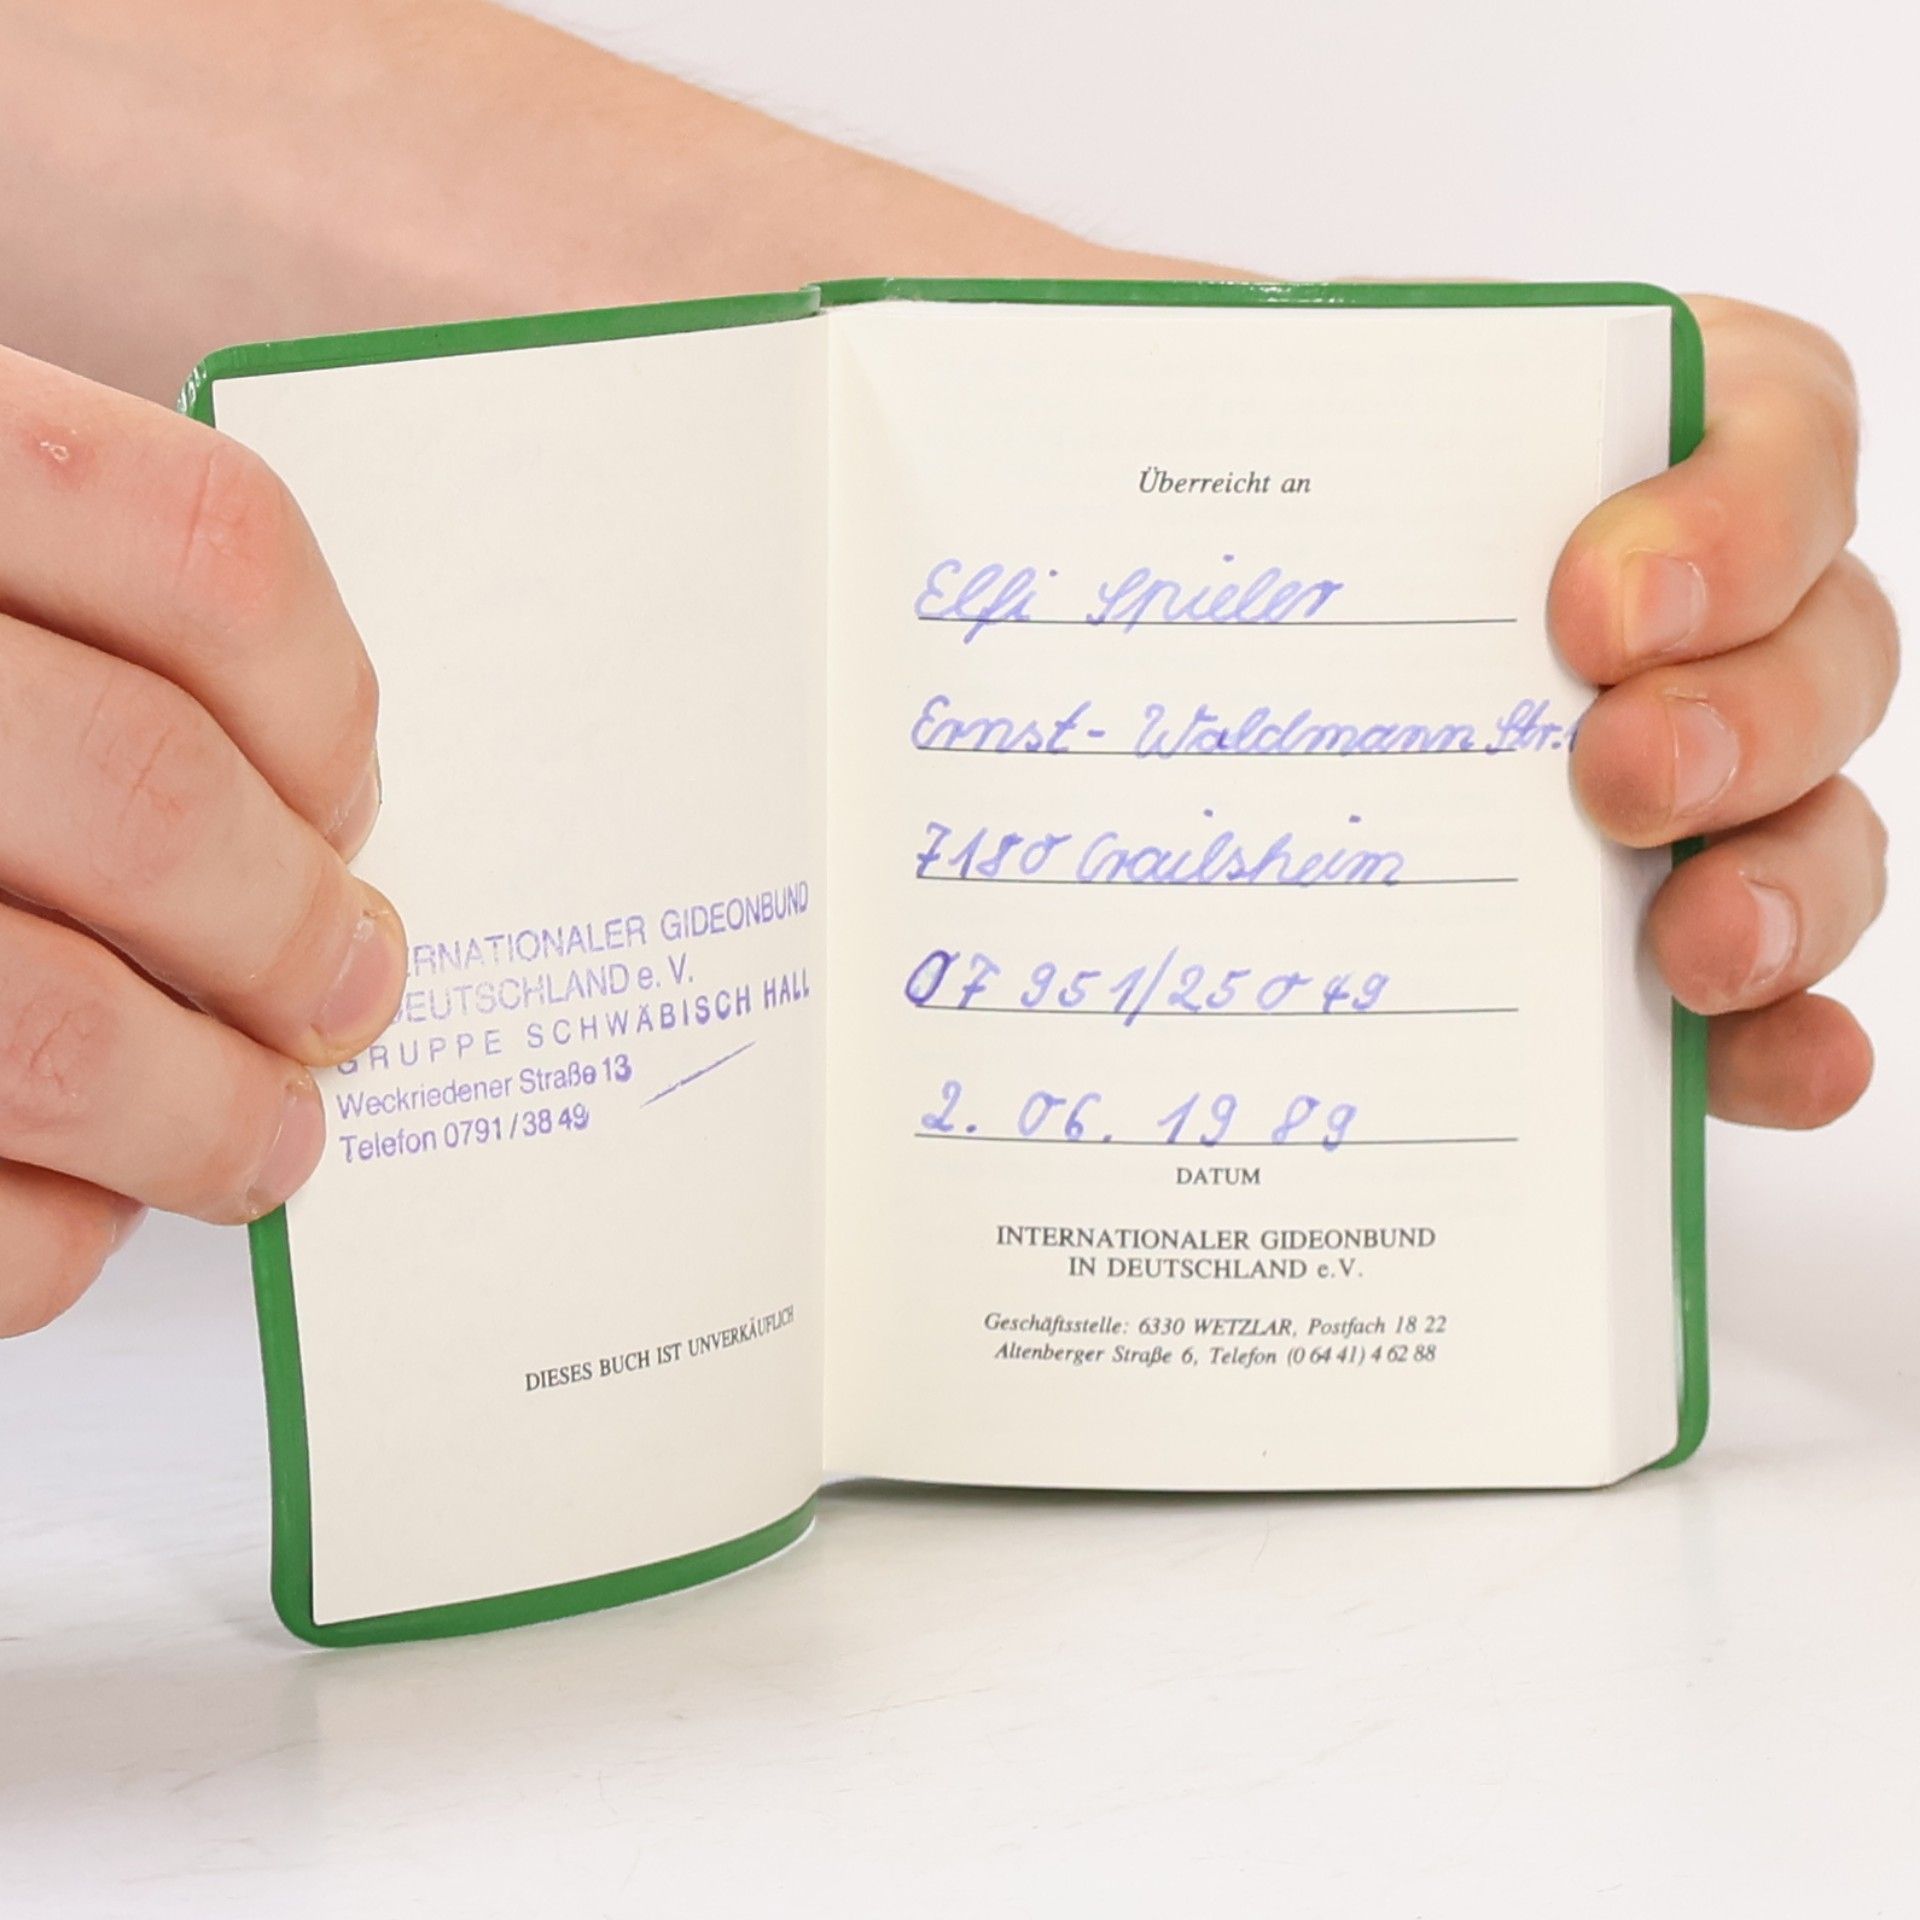 ERNATIONALER GIDEONBUND
DEUTSCHLAND e. V.
GRUPPE SCHWÄBISCH HALL
Weckriedener Straße 13
Telefon 0791/38 49
DIESES BUCH IST UNVERKÄUFLICH
Überreicht an
Elfi Spieler
Ernst-Waldmann Str.
7180 Crailsheim
07951/25049
2. 06. 1989
DATUM
INTERNATIONALER GIDEONBUND
IN DEUTSCHLAND e.V.
Geschäftsstelle: 6330 WETZLAR, Postfach 18 22
Altenberger Straße 6, Telefon (0 64 41) 4 62 88